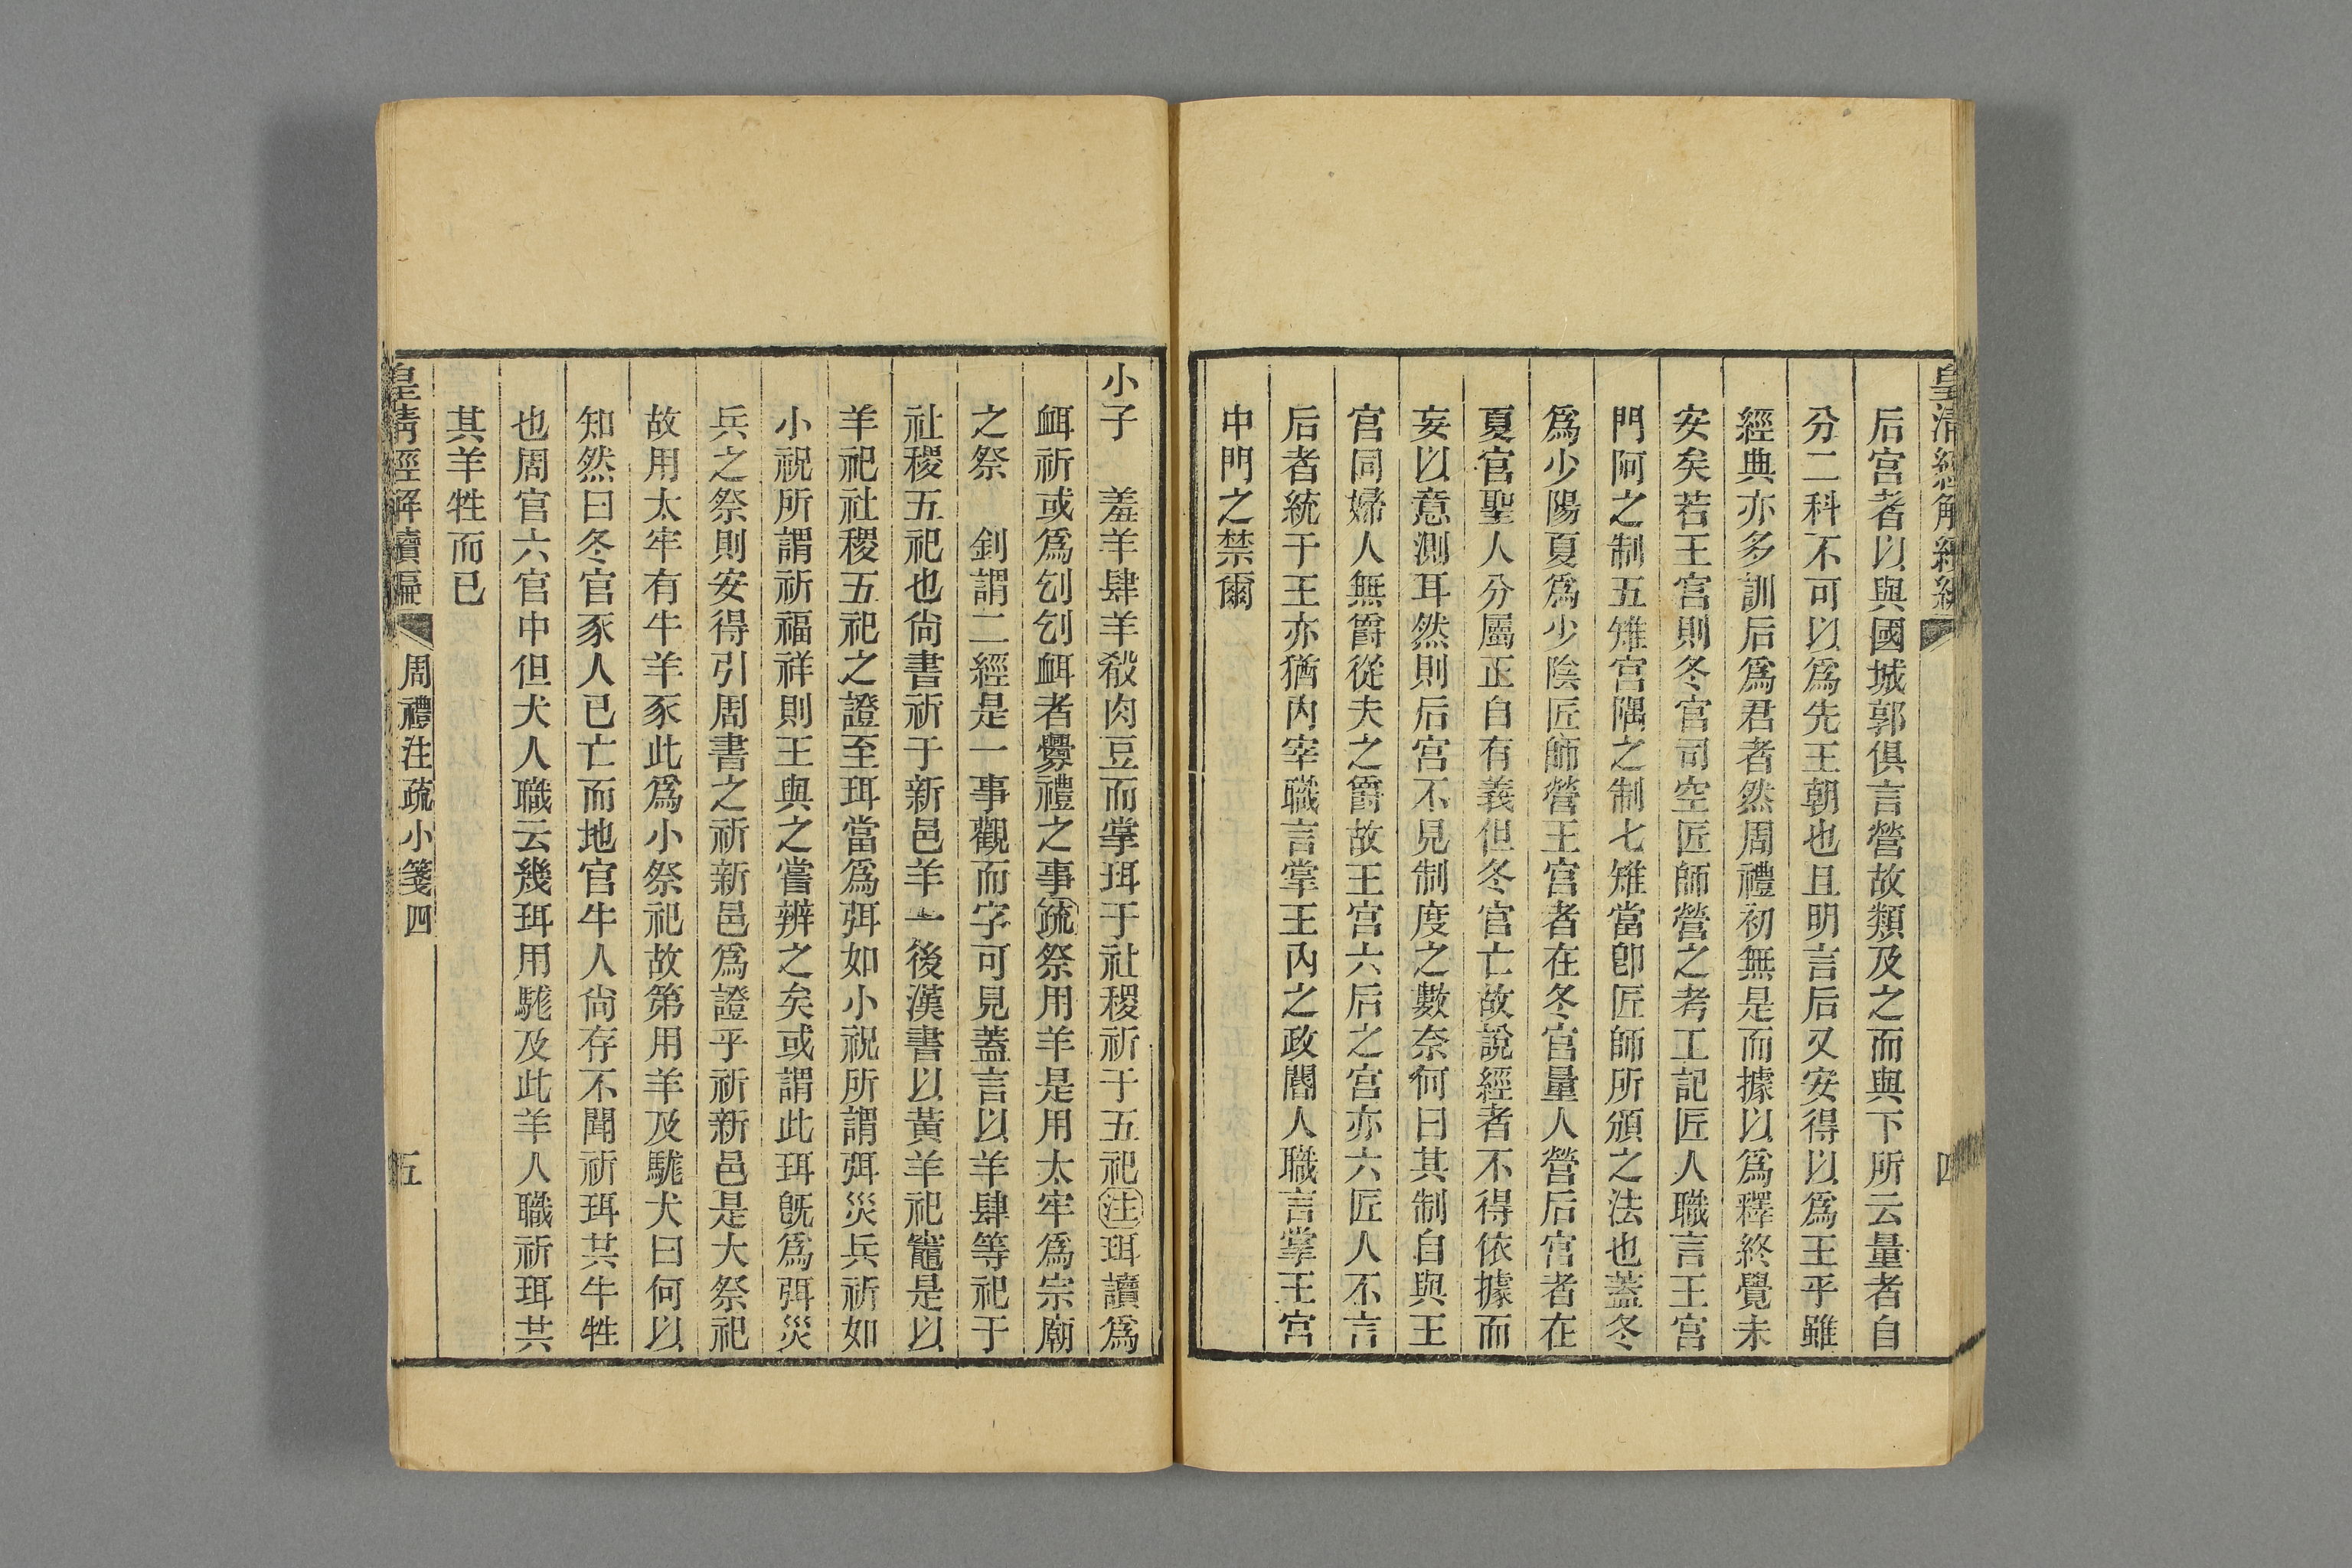 皇清經解續編
四
后宮者以與國城郭俱言營故類及之而與下所云量者自
分二科不可以爲先王朝也且明言后又安得以爲王乎雖
經典亦多訓后爲君者然周禮初無是而據以爲釋終覺未
安矣若王宮則冬官司空匠師營之考工記匠人職言王宮
門阿之制五雉宮隅之制七雉當卽匠師所頒之法也蓋冬
爲少陽夏爲少陰匠師營王宮者在冬官量人營后宮者在
夏官聖人分屬正自有義但冬官亡故說經者不得依據而
妄以意測耳然則后宮不見制度之數奈何曰其制自與王
宮同婦人無爵從夫之爵故王宮六后之宮亦六匠人不言
后者統于王亦猶內宰職言掌王內之政閽人職言掌王宮
中門之禁爾
小子　羞羊肆羊殽肉豆而掌珥于社稷祈于五祀注珥讀爲
衈祈或爲刉刉衈者釁禮之事疏祭用羊是用太牢爲宗廟
之祭　釗謂二經是一事觀而字可見蓋言以羊肆等祀于
社稷五祀也尙書祈于新邑羊一後漢書以黃羊祀竈是以
羊祀社稷五祀之證至珥當爲弭如小祝所謂弭災兵祈如
小祝所謂祈福祥則王與之嘗辨之矣或謂此珥旣爲弭災
兵之祭則安得引周書之祈新邑爲證乎祈新邑是大祭祀
故用太牢有牛羊豕此爲小祭祀故第用羊及駹犬曰何以
知然曰冬官豕人已亡而地官牛人尙存不聞祈珥共牛牲
也周官六官中但犬人職云幾珥用駹及此羊人職祈珥共
其羊牲而已
皇清經解續編
周禮注疏小箋四
五